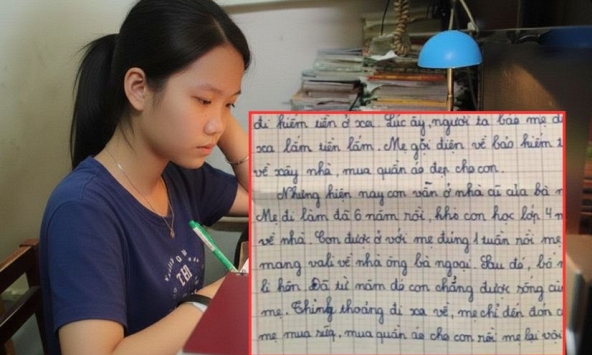 đi kiếm tiền ở xa. Lúc ấy, người ta bảo mẹ đi
xa lắm tiền lắm. Mẹ gọi điện về bảo kiếm
về xây nhà, mua quần áo đẹp cho con.
Nhưng hiện nay con vẫn ở nhà cũ của bà
Mẹ đi làm đã 6 năm rồi, khi con học lớp 4
về nhà. Con được ở với mẹ đúng 1 tuần rồi mẹ
mang vali về nhà ông bà ngoại. Sau đó, bố
li hôn. Đã từ năm đó con chẳng được sống
mẹ. Thỉnh thoảng đi xa về, mẹ chỉ đến đón
mẹ mua sữa, mua quần áo cho con rồi mẹ lại